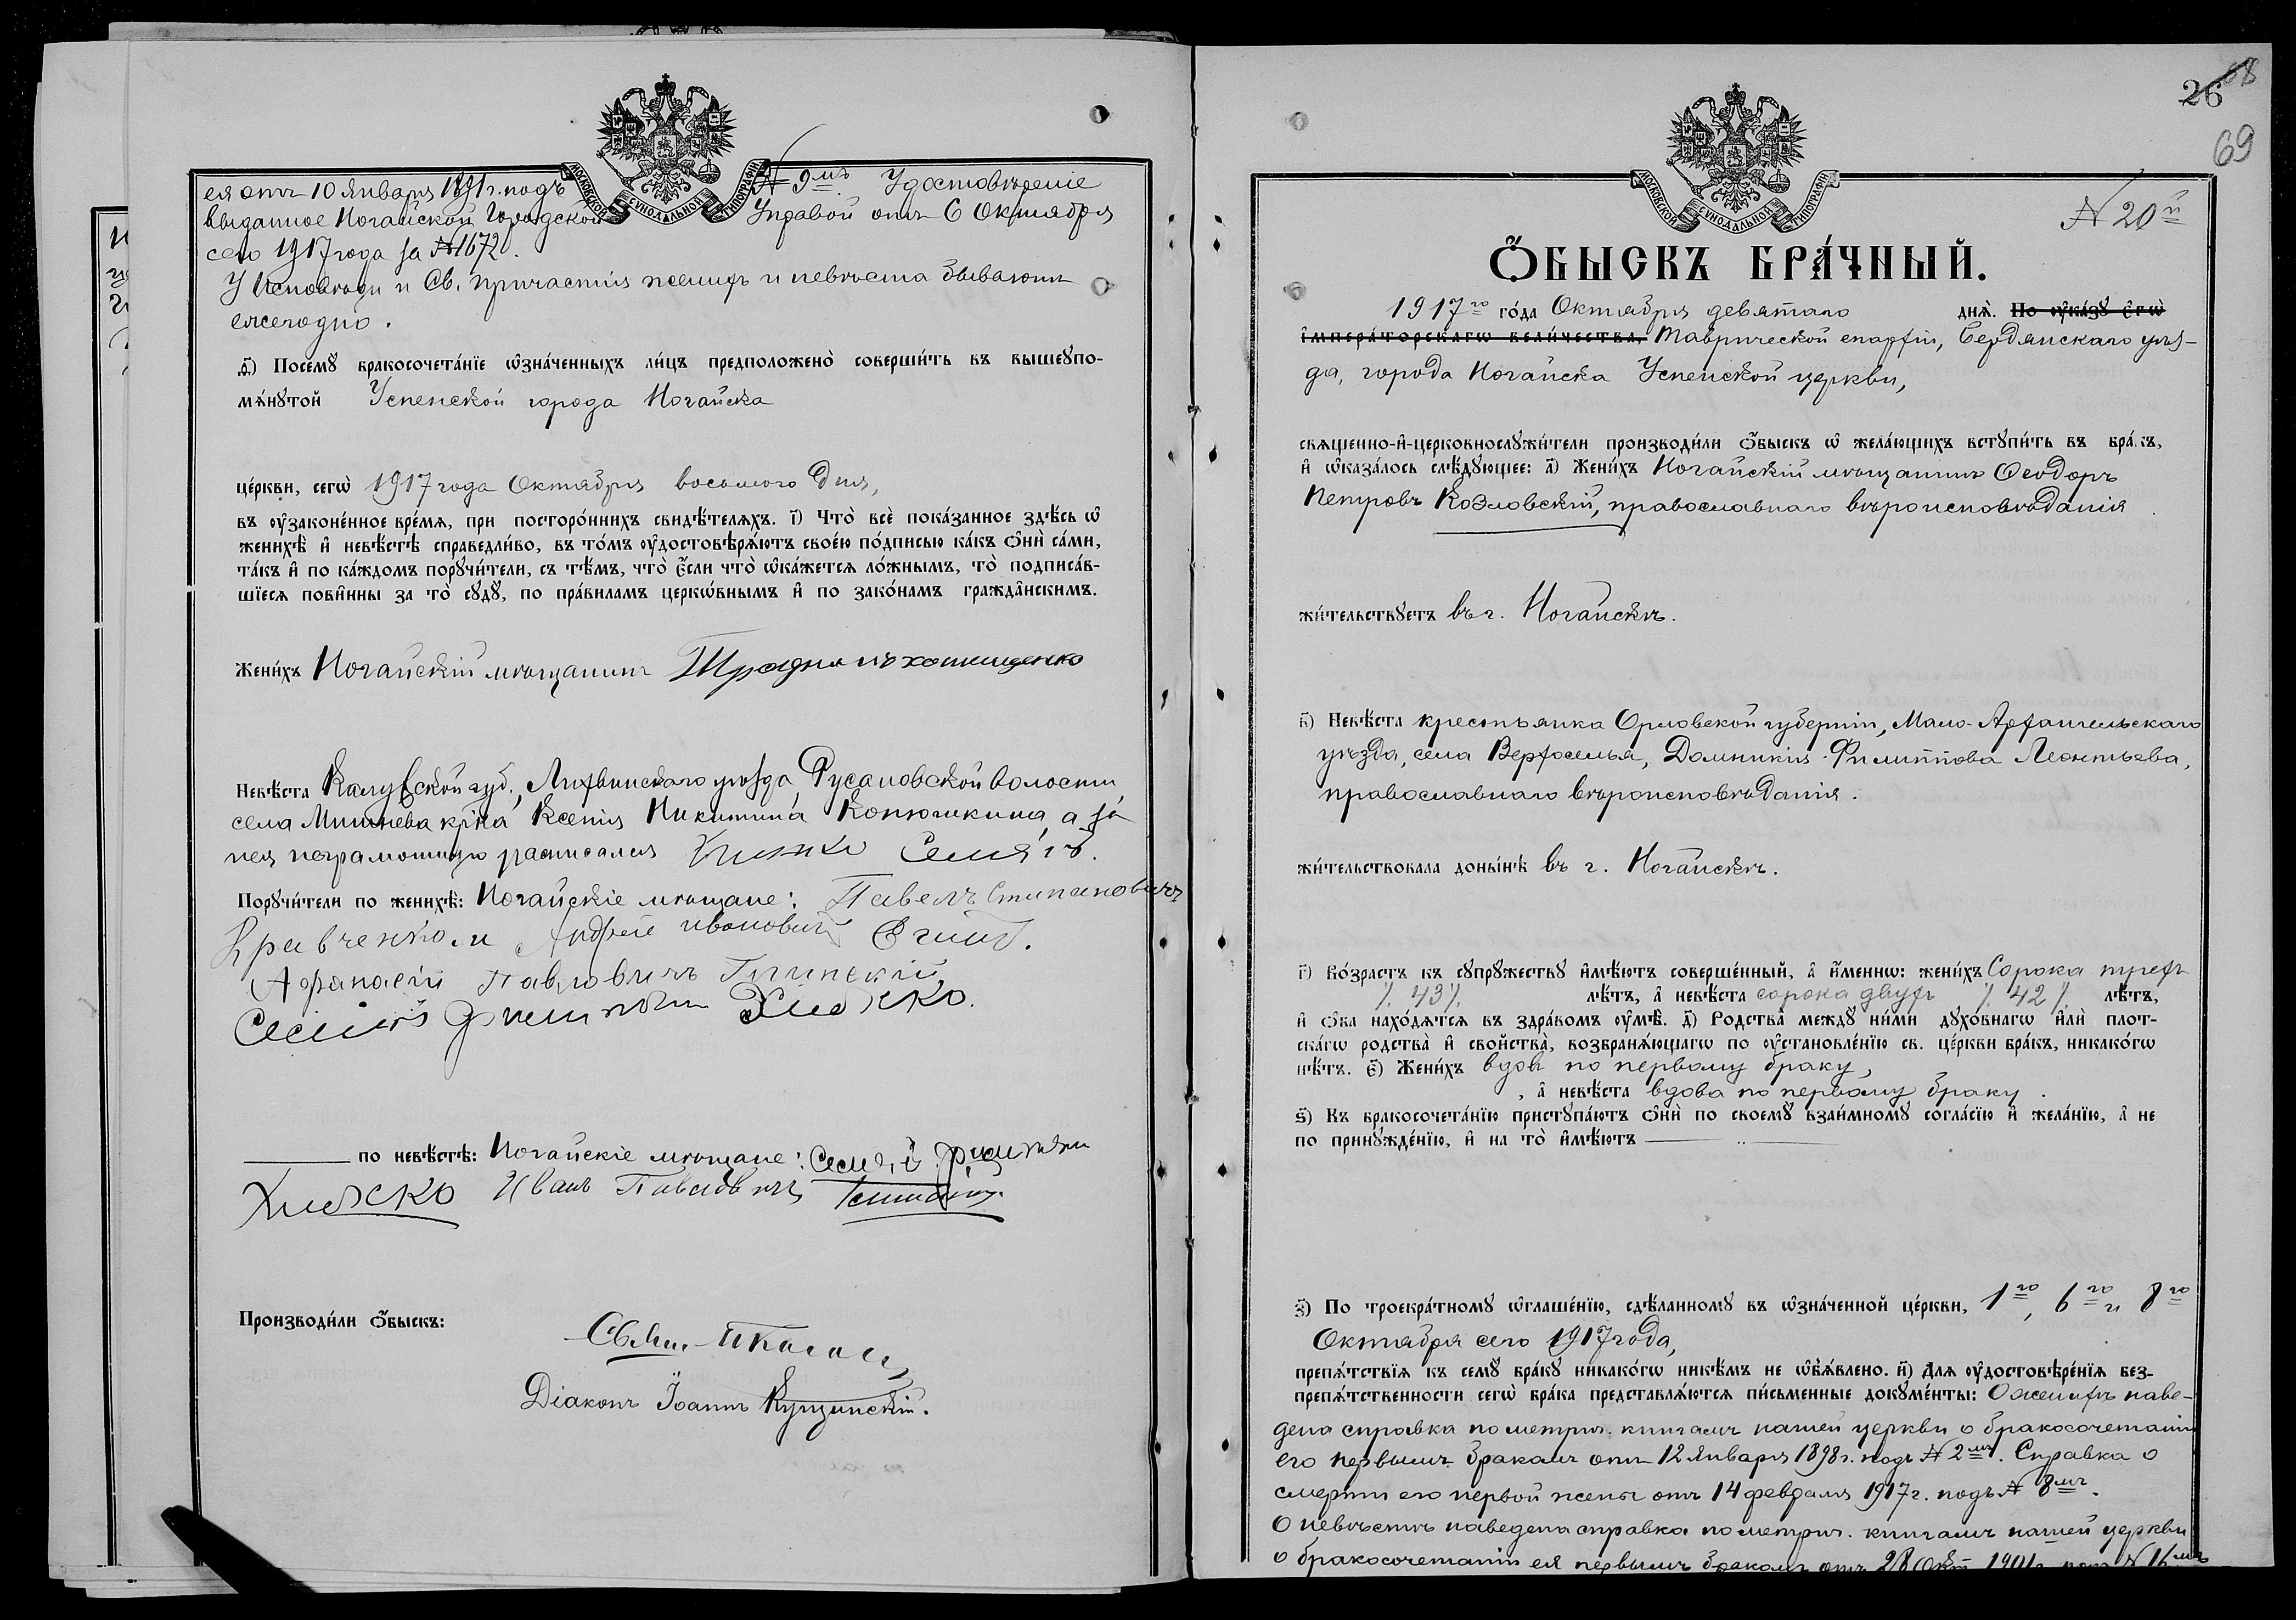 ея отъ 10 Января 1891 г. подъ № 9мъ. Удостовѣреніе
выданное Ногайской Городской Управой отъ 6 Октября
сего 1917 года за № 1672.
У Исповѣди и Св. Причастія женихъ и невѣста бываютъ
ежегодно.
Посемꙋ бракосочета́нїе ѡ҆зна́ченныхъ ли́цъ предположено̀ соверши́ть въ вышеупо-
мѧ́нꙋтой Успенской города Ногайска
це́ркви, сегѡ̀ 1917 года Октября восьмого дня,
въ ᲂу҆законе́нное вре́мѧ, при посторо́ннихъ свидѣ́телѧхъ. і҃) Что̀ всѐ пока́занное здѣ́сь ѡ҆
женихѣ̀ и҆ невѣ́стѣ справедли́во, въ то́мъ ᲂу҆достовѣрѧ́ютъ свое́ю по́дписью ка́къ ѻ҆нѝ са́ми,
та́къ и҆ по ка́ждомъ порꙋчи́тели, съ тѣ́мъ, что̀ є҆́сли что̀ ѡ҆ка́жетсѧ ло́жнымъ, то̀ подписа́в-
шїесѧ пови́нны за то̀ сꙋдꙋ̀, по пра́виламъ церко́внымъ и҆ по зако́намъ гражда́нскимъ.
Жени́хъ Ногайскій мѣщанинъ
Невѣ́ста Калужской губ., Лихвинскаго уѣзда, Русановской волости,
села Мишнева кр-ка Ксенія Никитина Конюшкина, а за
нея неграмотную расписался
Порꙋчи́тели по женихѣ̀: Ногайскіе мѣщане: Павелъ Стипановичъ
Кравченко. и Андрей ивановичъ
Афанасій Павловичъ
по невѣ́стѣ: Ногайскіе мѣщане:
Иванъ Павловичъ
Производи́ли ѻ҆́быскъ:
Свящ.
Діаконъ Іоаннъ Кущинскій.
МОСКОВСКОЙ СѴНОДАЛЬНОЙ ТИПОГРАФІИ
26 68
69
МОСКОВСКОЙ СѴНОДАЛЬНОЙ ТИПОГРАФІИ
№ 20й
Ѻ҆́БЫСКЪ БРА́ЧНЫЙ.
1917го го́да Октября девятаго днѧ̀. По ᲂу҆ка́зꙋ є҆гѡ̀
і҆мпера́торскагѡ вели́чества, Таврической епархіи, Бердянскаго уѣз-
да, города Ногайска Успенской церкви,
свѧщенно-и҆-церковнослꙋжи́тели производи́ли ѻ҆́быскъ ѡ҆ жела́ющихъ встꙋпи́ть въ бра́къ,
и҆ ѡ҆каза́лось слѣ́дꙋющее: а҃) Жени́хъ Ногайскій мѣщанинъ Ѳеодоръ
Петровъ Козловскій, православнаго вѣроисповѣданія
жи́тельствꙋетъ въ г. Ногайскѣ.
в҃) Невѣ́ста крестьянка Орловской губерніи, Мало-Архангельскаго
уѣзда, села Верхоселья, Домникія Филиппова Леонтьева,
православнаго вѣроисповѣданія.
жи́тельствовала доны́нѣ въ г. Ногайскѣ.
г҃) Во́зрастъ къ сꙋпрꙋ́жествꙋ и҆мѣ́ютъ соверше́нный, а҆ и҆́меннѡ: жени́хъ Сорока трехъ
/. 43 /. лѣ́тъ, а҆ невѣ́ста сорока двухъ /. 42 /. лѣ́тъ,
и҆ ѻ҆́ба нахо́дѧтсѧ въ здра́вомъ ᲂу҆мѣ̀. д҃) Родства̀ междꙋ ни́ми дꙋхо́внагѡ и҆лѝ плот-
ска́гѡ родства̀ и҆ свойства̀, возбранѧ́ющагѡ по ᲂу҆становле́нїю св. це́ркви бра́къ, никако́гѡ
нѣ́тъ. є҃) Жени́хъ вдовъ по первому браку,
, а҆ невѣ́ста вдова по первому браку.
ѕ҃) Къ бракосочета́нїю пристꙋпа́ютъ ѻ҆нѝ по своемꙋ̀ взаи́мномꙋ согла́сїю и҆ жела́нїю, а҆ не
по принꙋжде́нїю, и҆ на то̀ и҆мѣ́ютъ
з҃) По троекра́тномꙋ ѡ҆глаше́нїю, сдѣ́ланномꙋ въ ѡ҆зна́ченной це́ркви, 1го, 6го и 8го
Октября сего 1917 года,
препѧ́тствїѧ къ семꙋ̀ бра́кꙋ никако́гѡ никѣ́мъ не ѡ҆б̾ѧ́влено. и҃) Длѧ ᲂу҆достовѣре́нїѧ без-
препѧ́тственности сегѡ̀ бра́ка представлѧ́ютсѧ пи́сьменные докꙋме́нты: О женихѣ наве-
дена справка по метрич. книгамъ нашей церкви о бракосочетаніи
его первымъ бракомъ отъ 12 Января 1898 г. подъ № 2мъ. Справка о
смерти его первой жены отъ 14 февраля 1917 г. подъ № 8мъ.
О невѣстѣ наведена справка по метрич. книгамъ нашей церкви
о бракосочетаніи ея первымъ бракомъ отъ 28 Окт. 1901 г. подъ № 16мъ